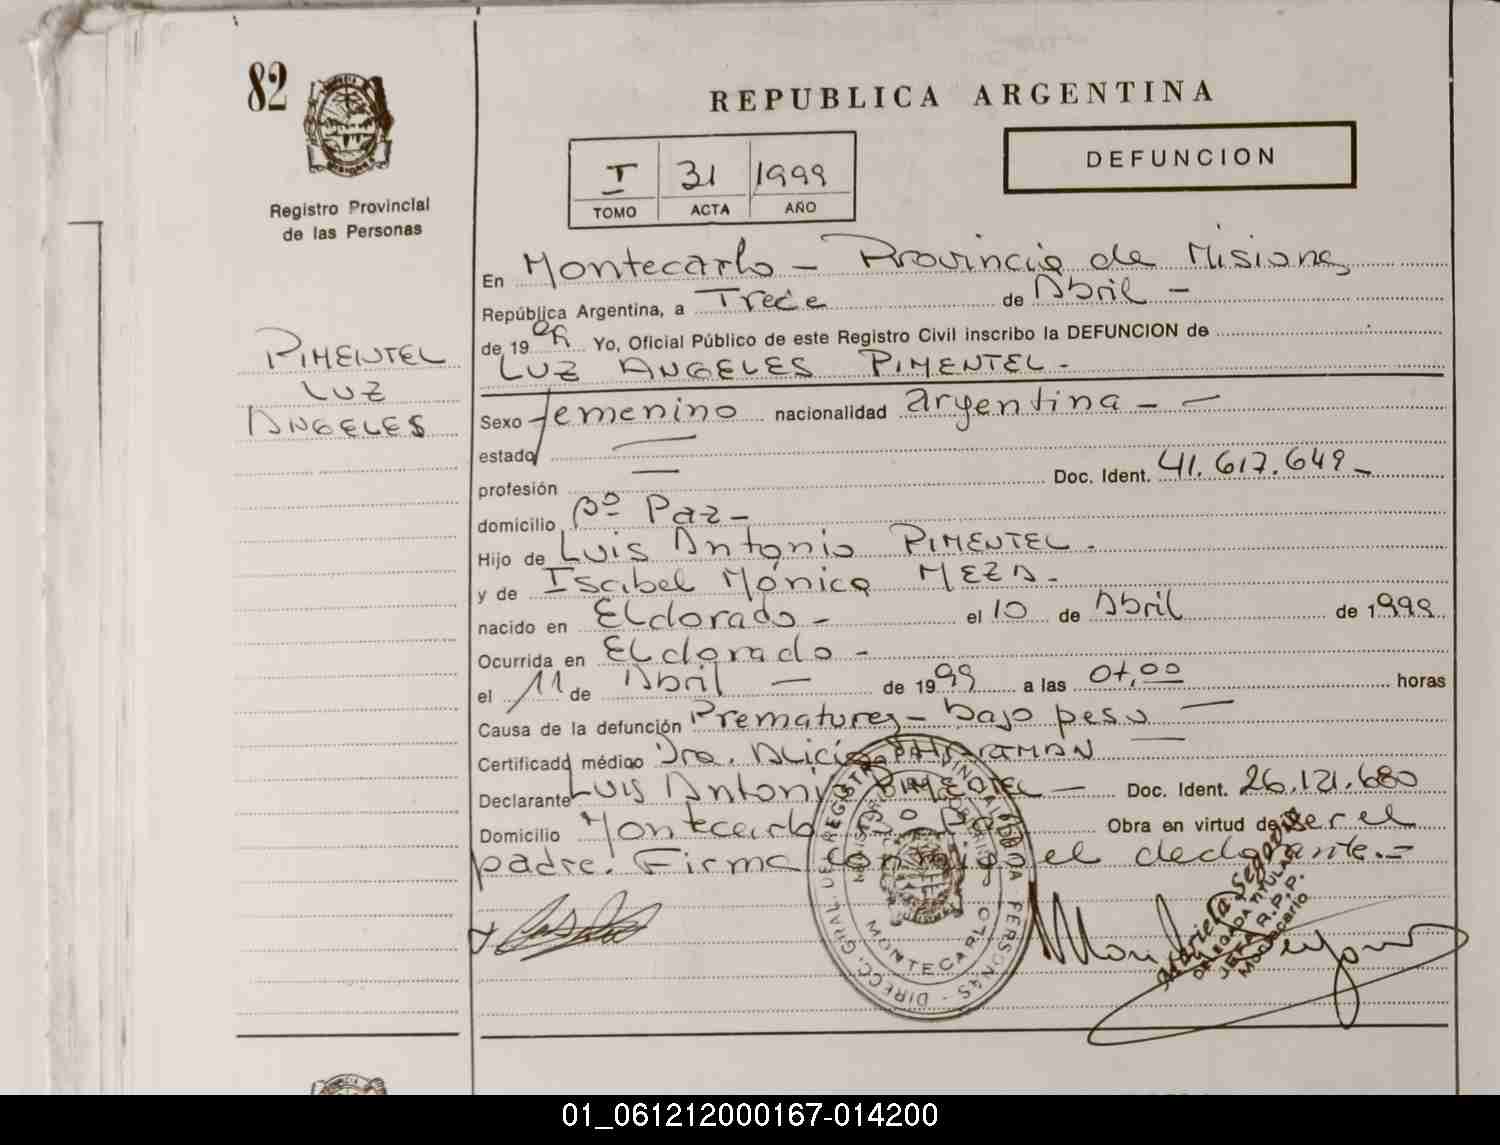 82
REPUBLICA ARGENTINA
DEFUNCION
I 31 1999
TOMO ACTA AÑO
Registro Provincial
de las Personas
PIMENTEL
LUZ
ANGELES
En Montecarlo - Provincia de Misiones
República Argentina, a Trece de Abril -
de 19 99 Yo, Oficial Público de este Registro Civil inscribo la DEFUNCION de
LUZ ANGELES PIMENTEL.
Sexo femenino nacionalidad argentina - -
estado
profesión Doc. Ident. 41.617.649-
domicilio Bº Paz-
Hijo de Luis Antonio PIMENTEL.
y de Isabel Mónica MEZA.
nacido en Eldorado - el 10 de Abril de 1999
Ocurrida en Eldorado -
el 11 de Abril - de 1999 a las 07,00 horas
Causa de la defunción Prematurez - bajo peso -
Certificado médico Dra. Alicia
Declarante Luis Antonio PIMENTEL - Doc. Ident. 26.121.680
Domicilio Montecarlo Bº Paz Obra en virtud de ser el
padre. Firma conmigo el declarante.-
DIRECC. GRAL. DE REGISTRO PROVINCIAL DE LAS PERSONAS -
MONTECARLO
DELEGADA TITULAR
JEFA R.P.P.
Montecarlo
01_061212000167-014200